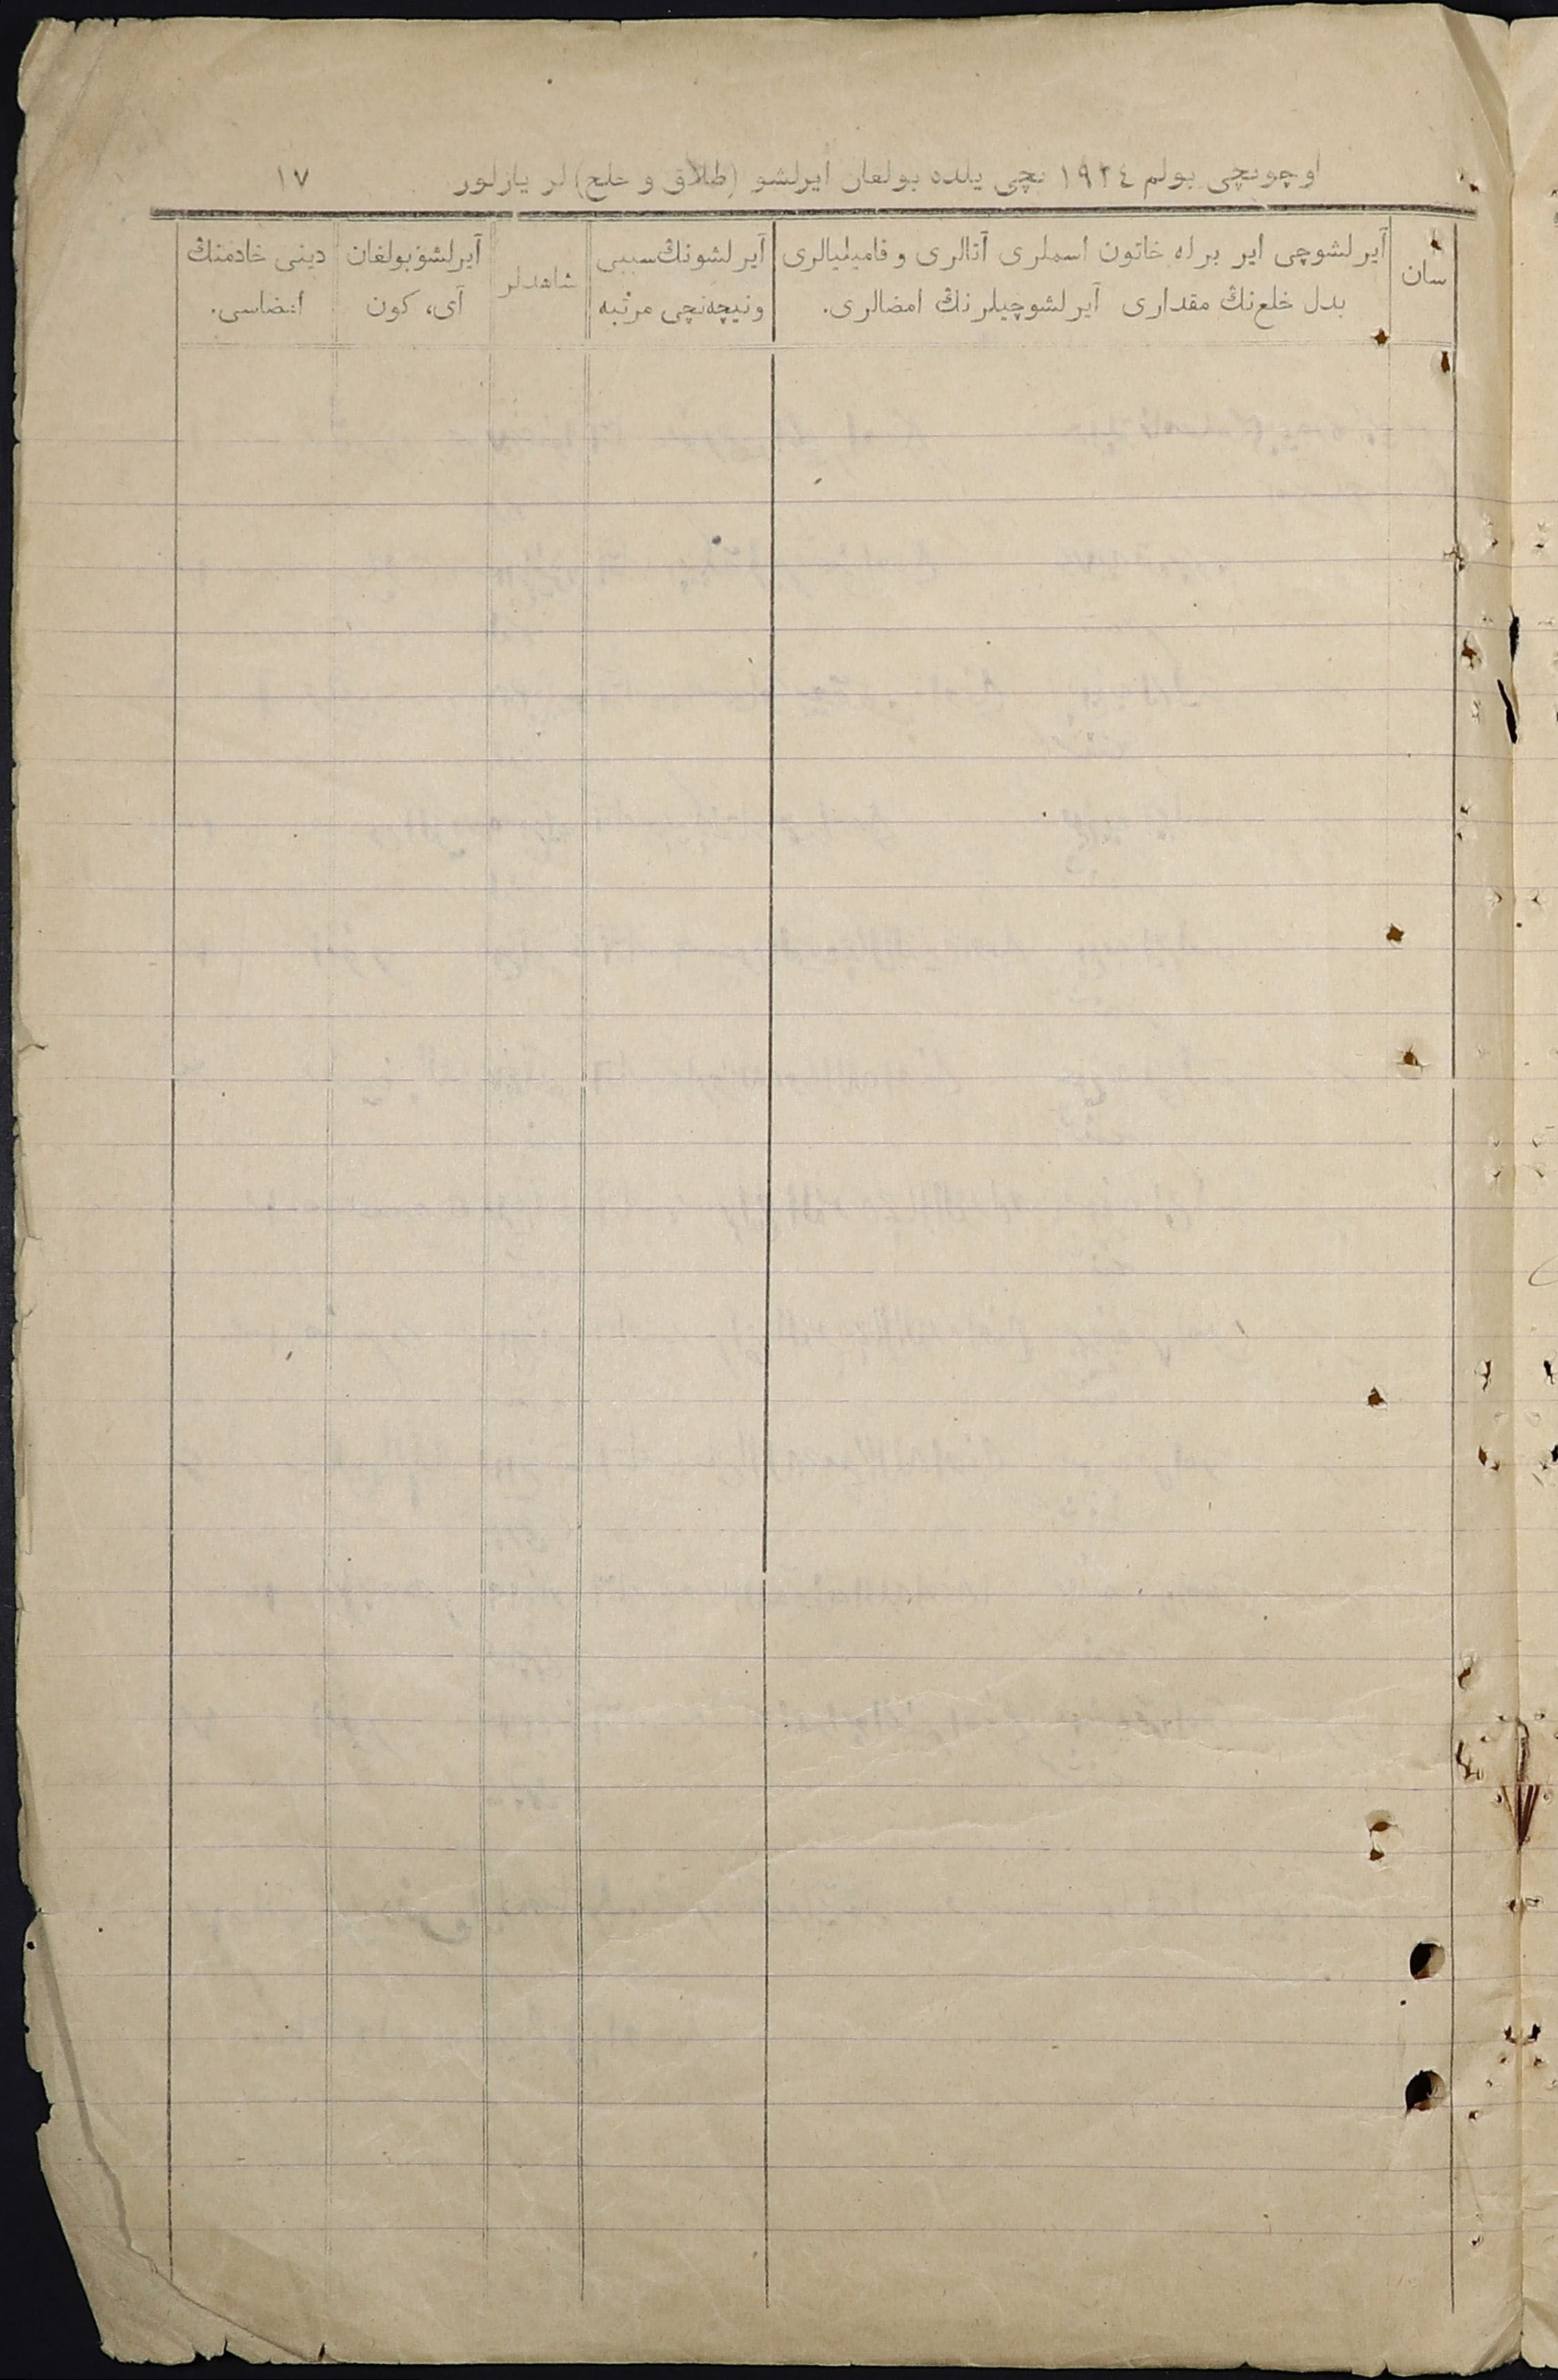 اوچونچی بولم ١٩٢٤ نچی یلده بولغان ایرلشو (طلاق و خلع) لر یازلور ١٧
سان
آیرلشوچی ایر برله خاتون اسملری آتالری و فامیلیالری
بدل خلع‌نڭ مقداری آیرلشوچیلرنڭ امضالری.
آیرلشونڭ سببی
ونیچه‌نچی مرتبه
شاهدلر
آیرلشو بولغان
آی، کون
دینی خادمنڭ
امضاسی.